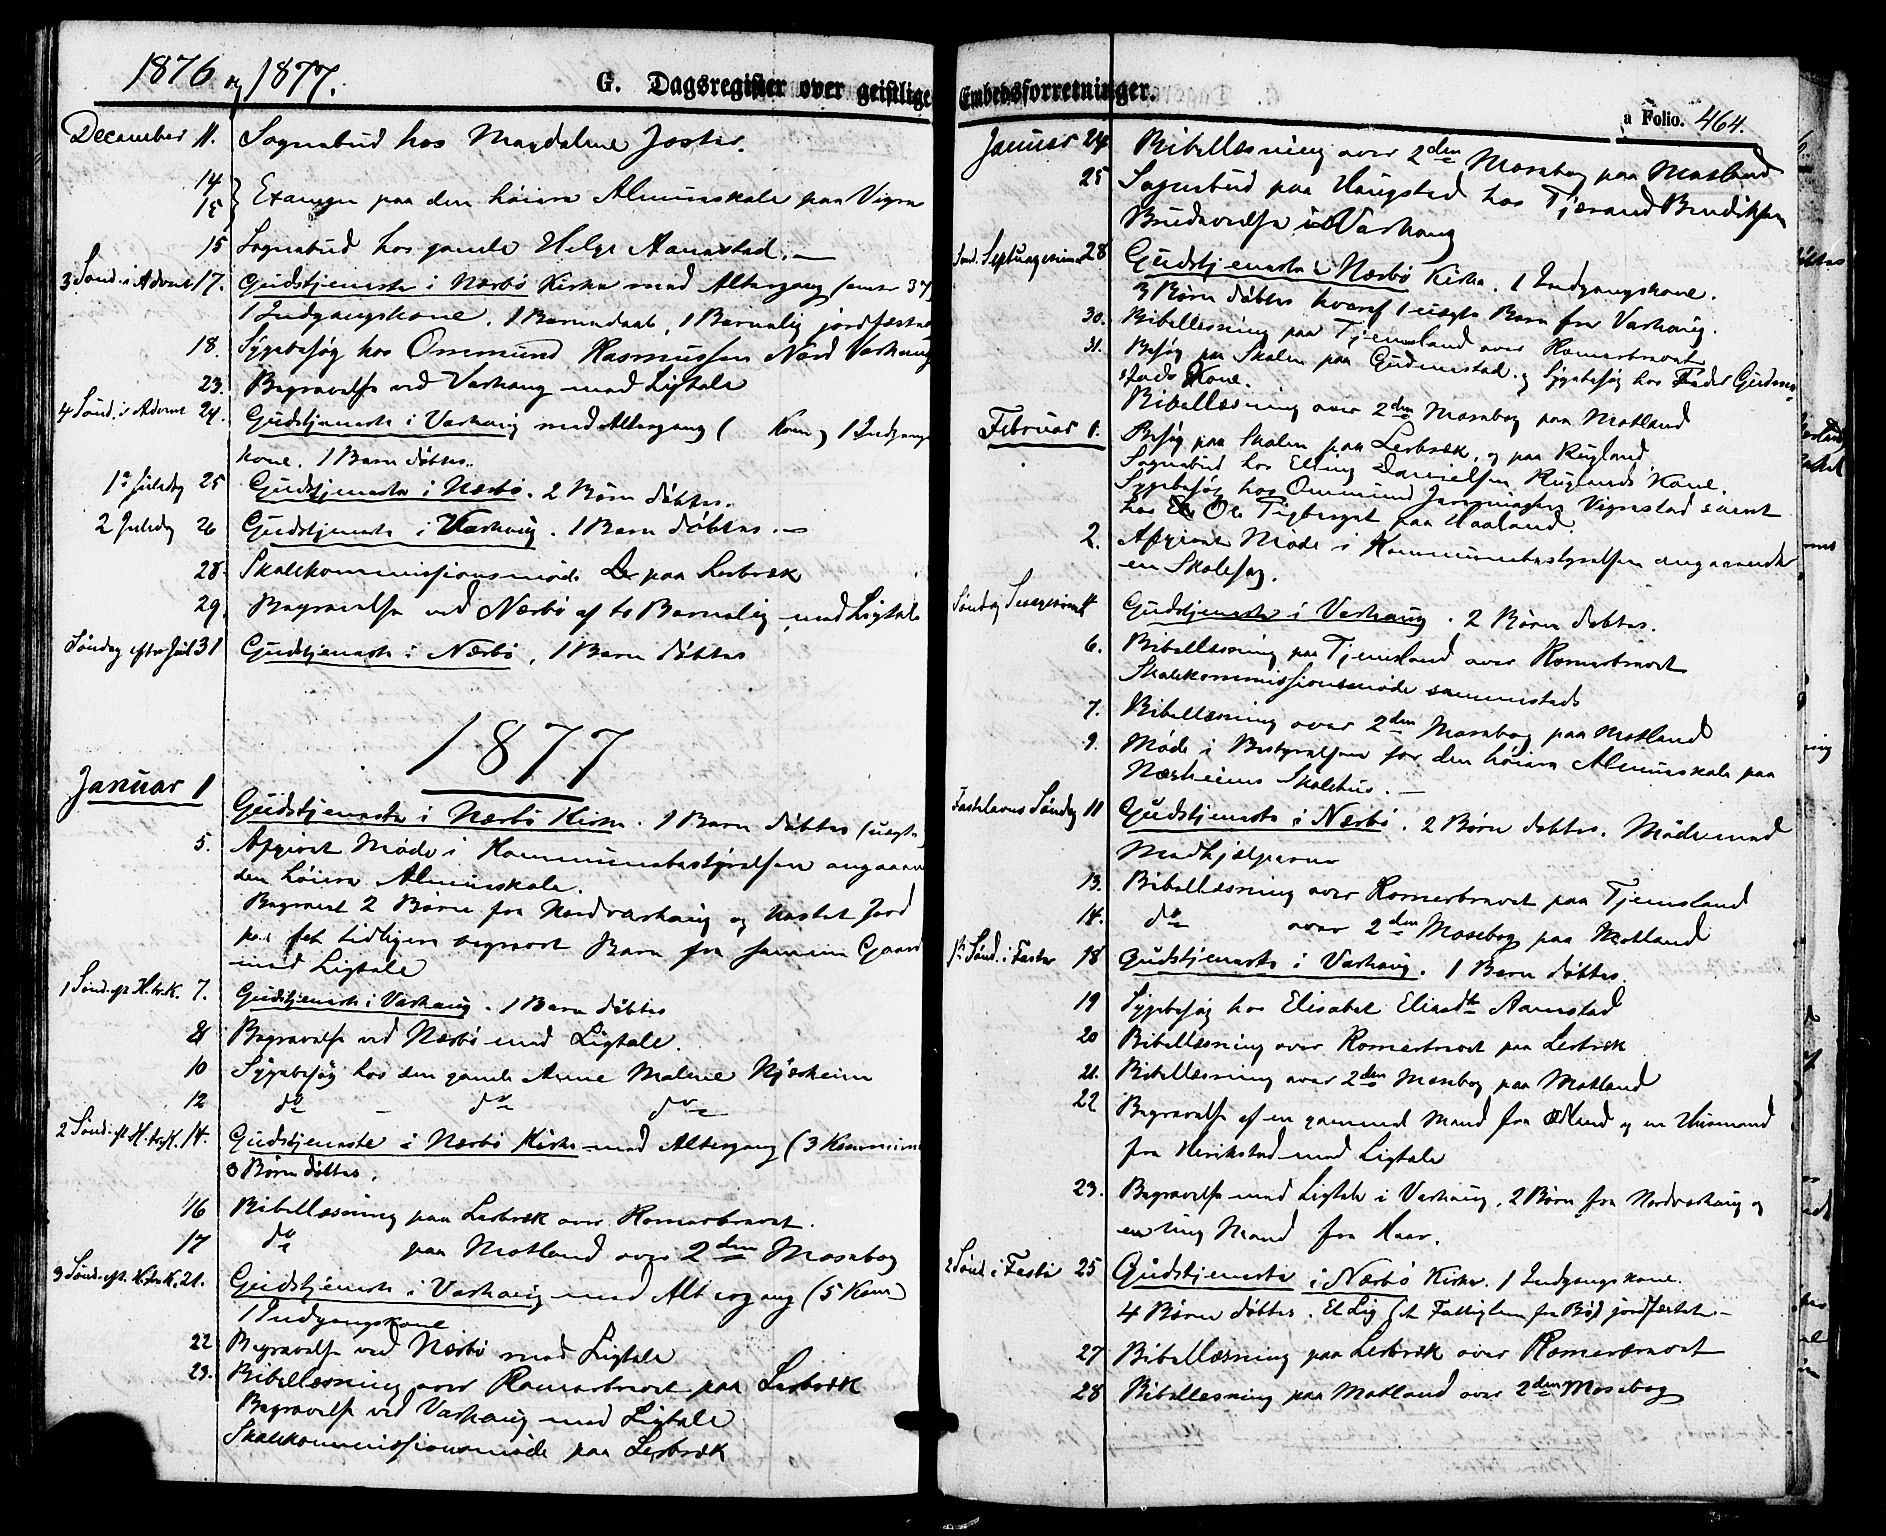 1876 og 1877.
G. Dagsregister over geistlige
December 11. Sognebud hos Magdalene
14
15 } Examen paa den høiere Almueskole paa Vigre
15 Sognebud hos gamle Helge Aanestad. —
3 Sønd. i Advent 17. Gudstjeneste i Nærbø Kirke med Altergang
1 Indgangskone. 1 Barnedaab, 1 Barnelig jordfæstet
18. Sygebesøg hos Ommund Rasmussen Nord Varhaug
23. Begravelse ved Varhaug med Ligtale
4 Sønd. i Advent 24. Gudstjeneste i Varhaug med Altergang ( Kom) 1 Indgangs
kone. 1 Barn døbtes.
1ste Juledag 25 Gudstjeneste i Nærbø. 2 Børn døbtes.
2 Juledag 26 Gudstjeneste i Varhaug. 1 Barn døbtes. —
28. Skolekommissionsmøde paa Lerbræk
29. Begravelse ved Nærbø af to Barnelig med Ligtale
Søndag efter Jul 31 Gudstjeneste i Nærbø, 1 Barn døbtes
1877
Januar 1 Gudstjeneste i Nærbø Kirke. 1 Barn døbtes (uægte)
5. Afgivet Møde i Kommunebestyrelsen angaaende
den høiere Almueskole.
Begravet 2 Børn fra Nordvarhaug og kastet Jord
paa et tidligere begravet Barn fra samme Gaard
med Ligtale
1 Sønd. ef. H.tr.K. 7. Gudstjeneste i Varhaug. 1 Barn døbtes
Begravelse ved Nærbø med Ligtale.
10 Sygebesøg hos den gamle Anne Malene Njærheim
12 do — do do
2 Sønd. ef. H.tr.K. 14. Gudstjeneste i Nærbø Kirke med Altergang (3
3 Børn døbtes.
16 Bibellæsning paa Lerbræk over Romerbrevet.
17 do paa Motland over 2den Mosebog
3 Sønd. eft. H.tr.K. 21. Gudstjeneste i Varhaug med Altergang (5 Kom)
1 Indgangskone
22 Begravelse ved Nærbø med Ligtale
23. Bibellæsning over Romerbrevet paa Lerbræk
Begravelse ved Varhaug med Ligtale
Skolekommissionsmøde paa Lerbræk
Embedsforretninger.
a Folio. 464.
Januar 24 Bibellæsning over 2den Mosebog paa Motland
25 Sognebud paa Haugstad hos Tjerand Bendiksen
Brudevielse i Varhaug
Sønd. Septuagesima 28 Gudstjeneste i Nærbø Kirke. 1 Indgangskone.
3 Børn døbtes hvoraf 1 uægte Barn fra Varhaug.
30. Bibellæsning paa Tjemsland over Romerbrevet
31. Besøg paa Skolen paa Gudmestad. og Sygebesøg hos Gudme-
stads Kone.
Bibellæsning over 2den Mosebog paa Motland
Februar 1. Besøg paa Skolen paa Lerbræk, og paa Rugland
Sognebud hos Elling Danielsen Ruglands Kone.
Sygebesøg hos Ommund Vigrestad samt
hos Ole paa Haaland.
2. Afgivet Møde i Kommunebestyrelsen angaaende
en Skolesag.
Søndag Sexagesima 4 Gudstjeneste i Varhaug. 2 Børn døbtes.
6. Bibellæsning paa Tjemsland over Romerbrevet
Skolekommissionsmøde sammesteds
7. Bibellæsning over 2den Mosebog paa Motland
9. Møde i Bestyrelsen for den høiere Almueskole paa
Nærheims Skolehus. —
Fastelavns Søndag 11 Gudstjeneste i Nærbø. 2 Børn døbtes. Møde med
Medhjælperne
13. Bibellæsning over Romerbrevet paa Tjemsland
14. do over 2den Mosebog paa Motland
1ste Sønd. i Faste 18 Gudstjeneste i Varhaug. 1 Barn døbtes.
19 Sygebesøg hos Elisabet Eliasdtr Aanestad
20 Bibellæsning over Romerbrevet paa Lerbræk
21. Bibellæsning over 2den Mosebog paa Motland
22 Begravelse af en gammel Mand fra Ødland og en Husmand
fra Herikstad med Ligtale
23. Begravelse med Ligtale i Varhaug. 2 Børn fra Nordvarhaug og
en ung Mand fra Haar.
2 Sønd. i Faste 25 Gudstjeneste i Nærbø Kirke. 1 Indgangskone.
4 Børn døbtes. Et Lig (et Fattiglem fra Bø) jordfæstet —
27 Bibellæsning paa Lerbræk over Romerbrevet
28 Bibellæsning paa Motland over 2den Mosebog